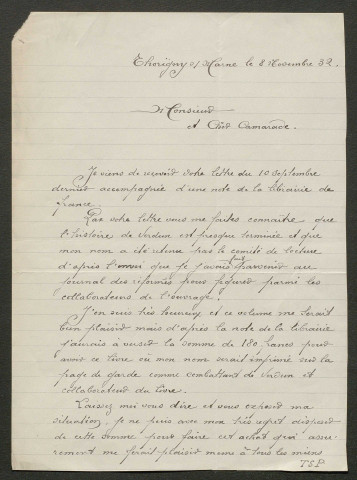 Thorigny s/ Marne le 8 Novembre 32.
Monsieur
et Cher Camarade.
Je viens de recevoir votre lettre du 10 Septembre
dernier accompagnée d'une note de la librairie de
france.
Par votre lettre vous me faites connaître que
l'histoire de Verdun est presque terminée et que
mon nom a été retenu par le comité de lecture
d'après l'envoi que je j'avais fait au
journal des réformés pour figurer parmi les
collaborateurs de l'ouvrage.
J'en suis très heureux et ce volume me ferait
bien plaisir mais d'après la note de la librairie
j'aurais à verser la somme de 180 francs pour
avoir ce livre où mon nom serait imprimé sur la
page de garde comme combattant de Verdun et
collaborateur du livre.
Laissez moi vous dire et vous exposer ma
situation, je ne puis avec mon très regret disposer
de cette somme pour faire cet achat qui assu-
rément me ferait plaisir même à tous les miens
TSP